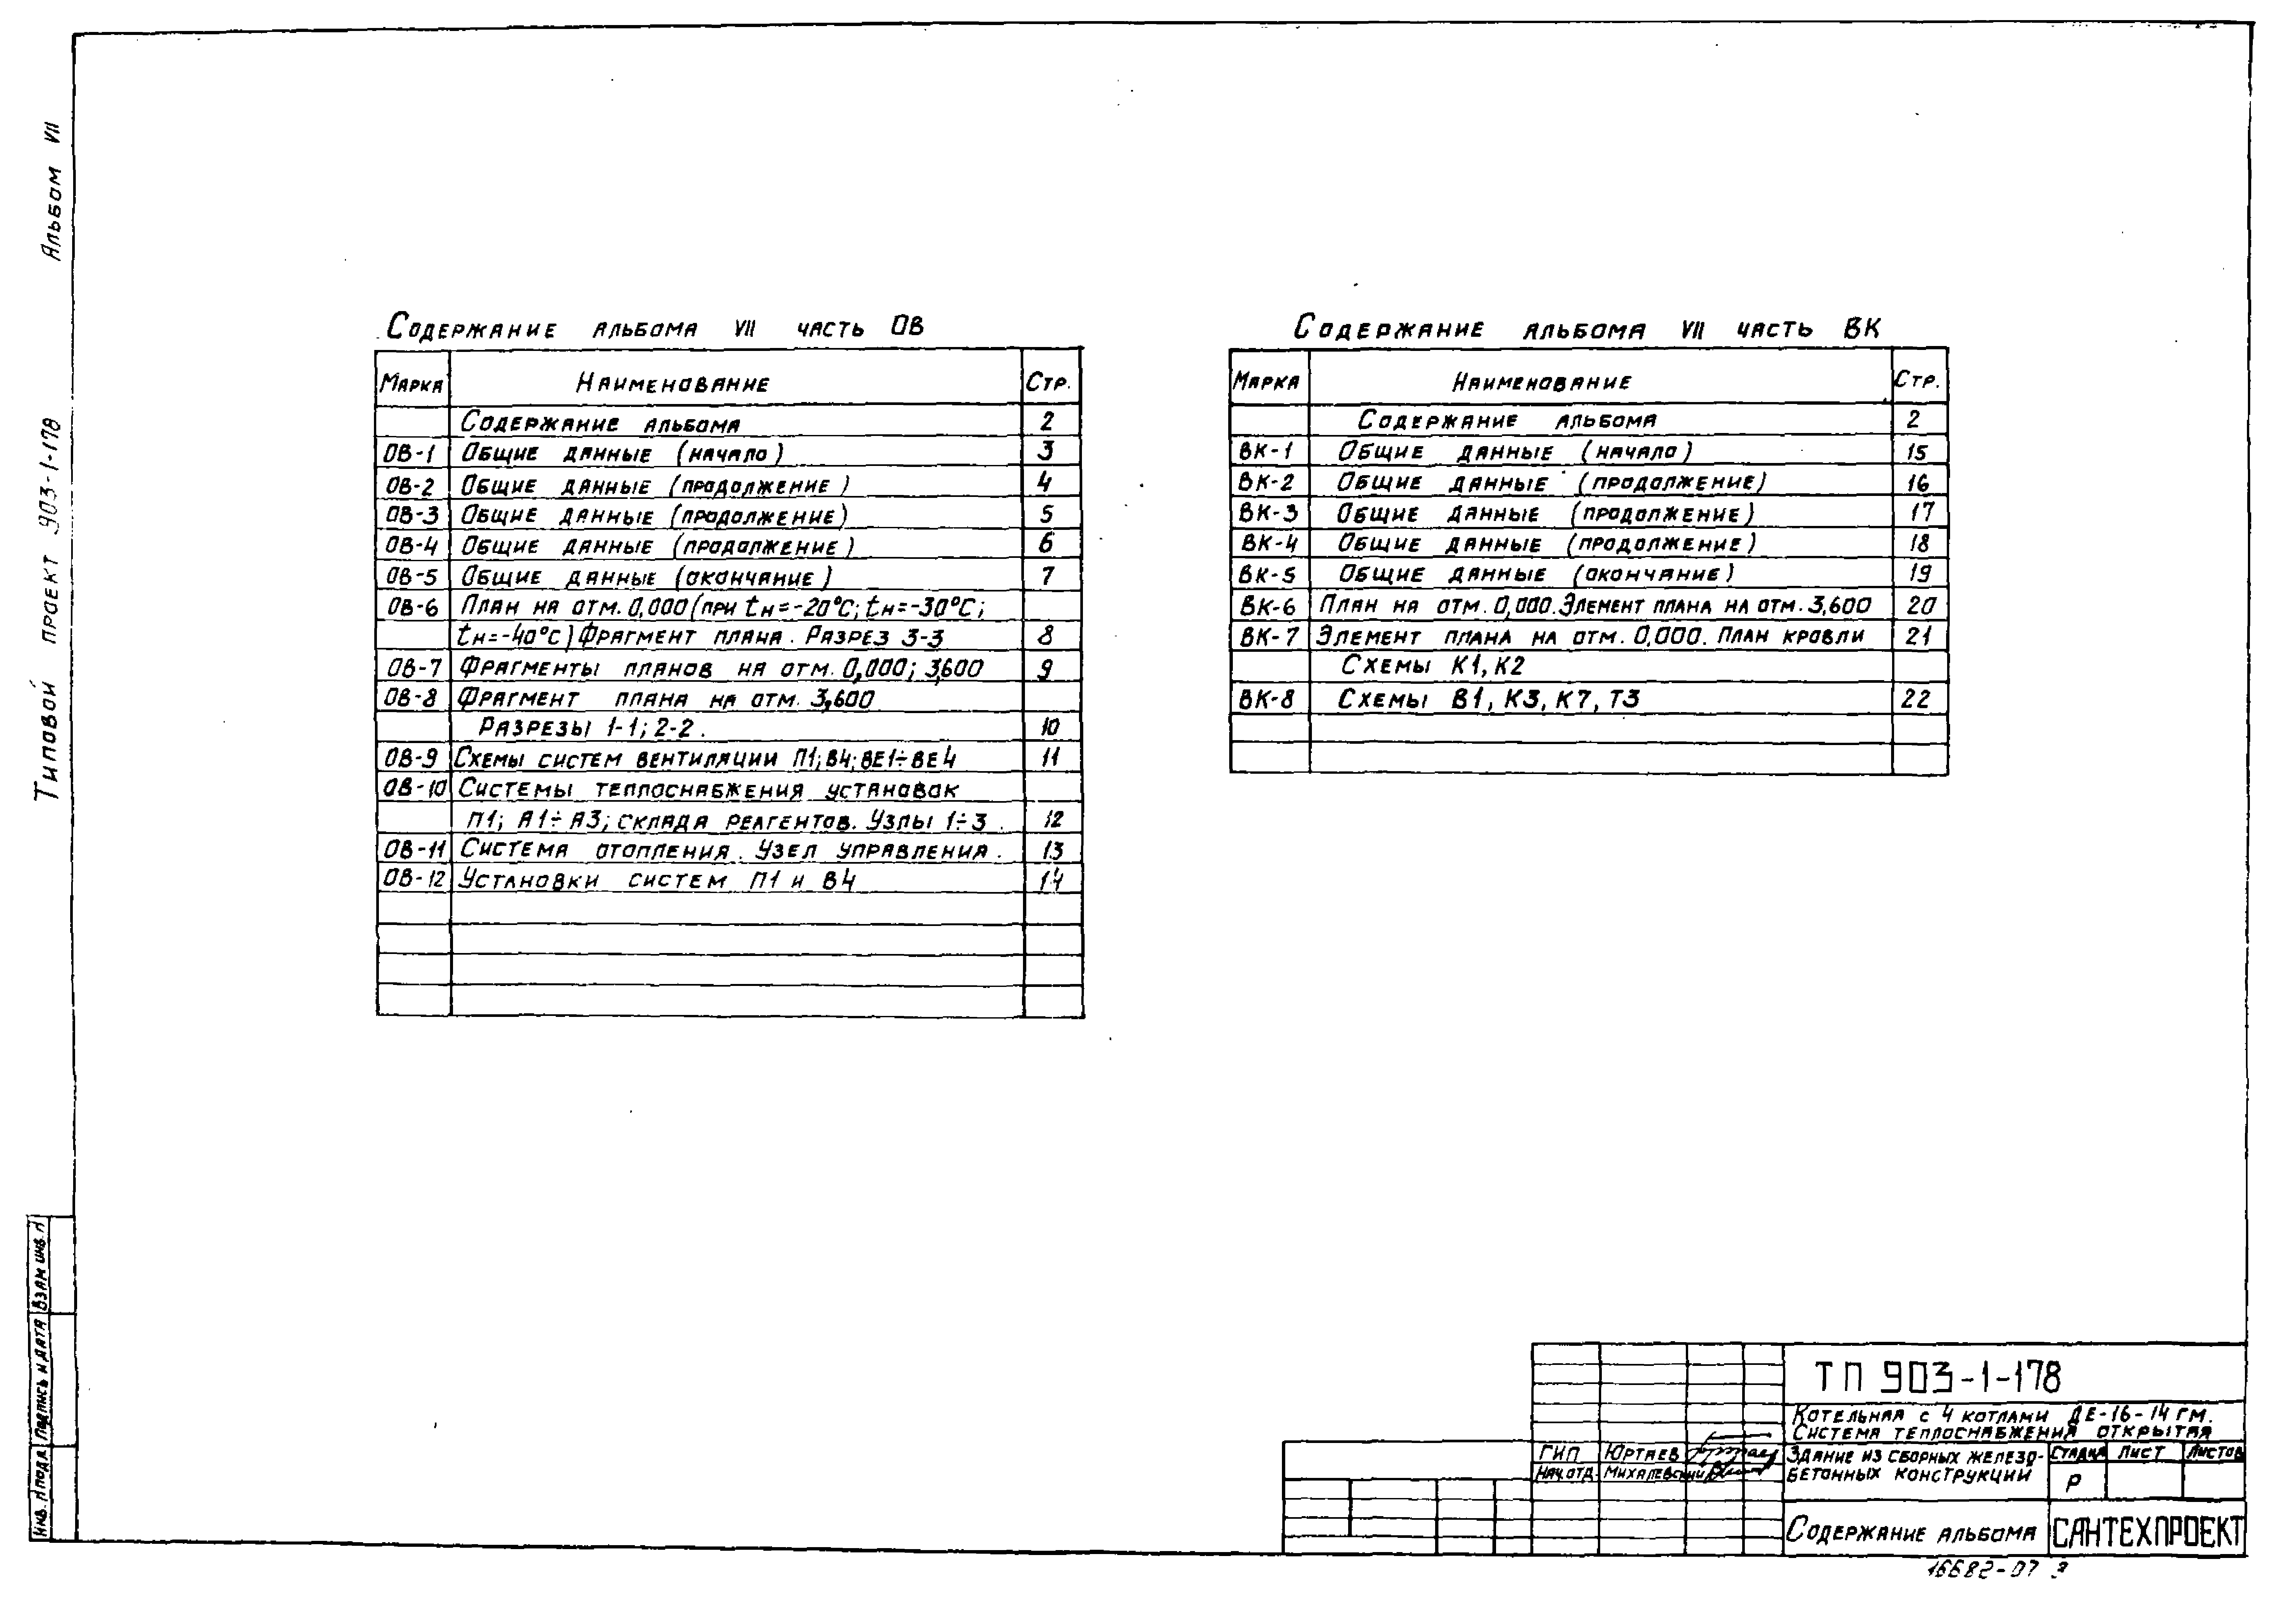 Альбом VII
Типовой проект 903-1-178
Содержание альбома VII часть ОВ
Марка Наименование Стр.
Содержание альбома 2
ОВ-1 Общие данные (начало) 3
ОВ-2 Общие данные (продолжение) 4
ОВ-3 Общие данные (продолжение) 5
ОВ-4 Общие данные (продолжение) 6
ОВ-5 Общие данные (окончание) 7
ОВ-6 План на отм. 0,000 (при tн=-20°С; tн=-30°С;
tн=-40°С) Фрагмент плана. Разрез 3-3 8
ОВ-7 Фрагменты планов на отм. 0,000; 3,600 9
ОВ-8 Фрагмент плана на отм. 3,600
Разрезы 1-1; 2-2. 10
ОВ-9 Схемы систем вентиляции П1; В4; ВЕ1÷ВЕ4 11
ОВ-10 Системы теплоснабжения установок
П1; А1÷А3; склада реагентов. Узлы 1÷3. 12
ОВ-11 Система отопления. Узел управления. 13
ОВ-12 Установки систем П1 и В4 14
Содержание альбома VII часть ВК
Марка Наименование Стр.
Содержание альбома 2
ВК-1 Общие данные (начало) 15
ВК-2 Общие данные (продолжение) 16
ВК-3 Общие данные (продолжение) 17
ВК-4 Общие данные (продолжение) 18
ВК-5 Общие данные (окончание) 19
ВК-6 План на отм. 0,000. Элемент плана на отм. 3,600 20
ВК-7 Элемент плана на отм. 0,000. План кровли 21
Схемы К1, К2
ВК-8 Схемы В1, К3, К7, Т3 22
Взам инв. N
Подпись и дата
Инв. N подл
ТП 903-1-178
Котельная с 4 котлами ДЕ-16-14 ГМ.
Система теплоснабжения открытая
ГИП Юртаев
Нач.отд. Михалевский
Здание из сборных железо-
бетонных конструкции
Стадия Лист Листов
Р
Содержание альбома
САНТЕХПРОЕКТ
16682-07 3